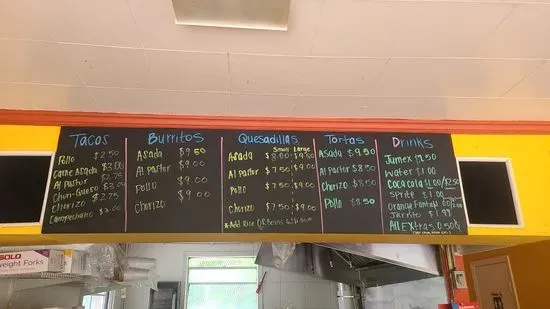 Tacos
Pollo $2.50
Carne Asada $3.00
Al Pastor $2.75
Chori-Queso $3.00
Chorizo $2.75
Campechano $3.00
Burritos
Asada $9.50
Al Pastor $9.00
Pollo $9.00
Chorizo $9.00
Quesadillas
Small Large
Asada $8.00 $9.50
Al Pastor $7.50 $9.00
Pollo $7.50 $9.00
Chorizo $7.50 $9.00
*Add Rice OR Beans
Tortas
Asada $9.50
Al Pastor $8.50
Chorizo $8.50
Pollo $8.50
Drinks
Jumex $1.50
Water $1.00
Coca cola $1.00/$2.50
Sprite $1.00
Orange Fanta
Jarrito $1.99
All Extras 0.50¢
SOLO
weight Forks